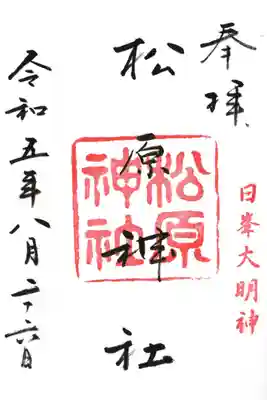 奉拝
日峯大明神
松原神社
松原神社
令和五年八月二十六日